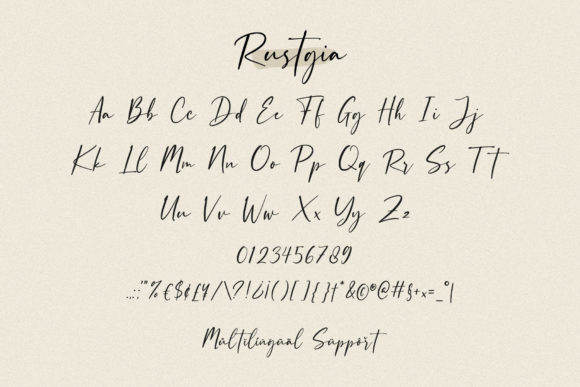 Rustgia
Aa Bb Cc Dd Ee Ff Gg Hh Ii Jj
Kk Ll Mm Nn Oo Pp Qq Rr Ss Tt
Uu Vv Ww Xx Yy Zz
0123456789
.,:;'"%€$¢£¥/\?!¿¡()[]{}†*&©®@#§+×=_°|
Multilingual Support